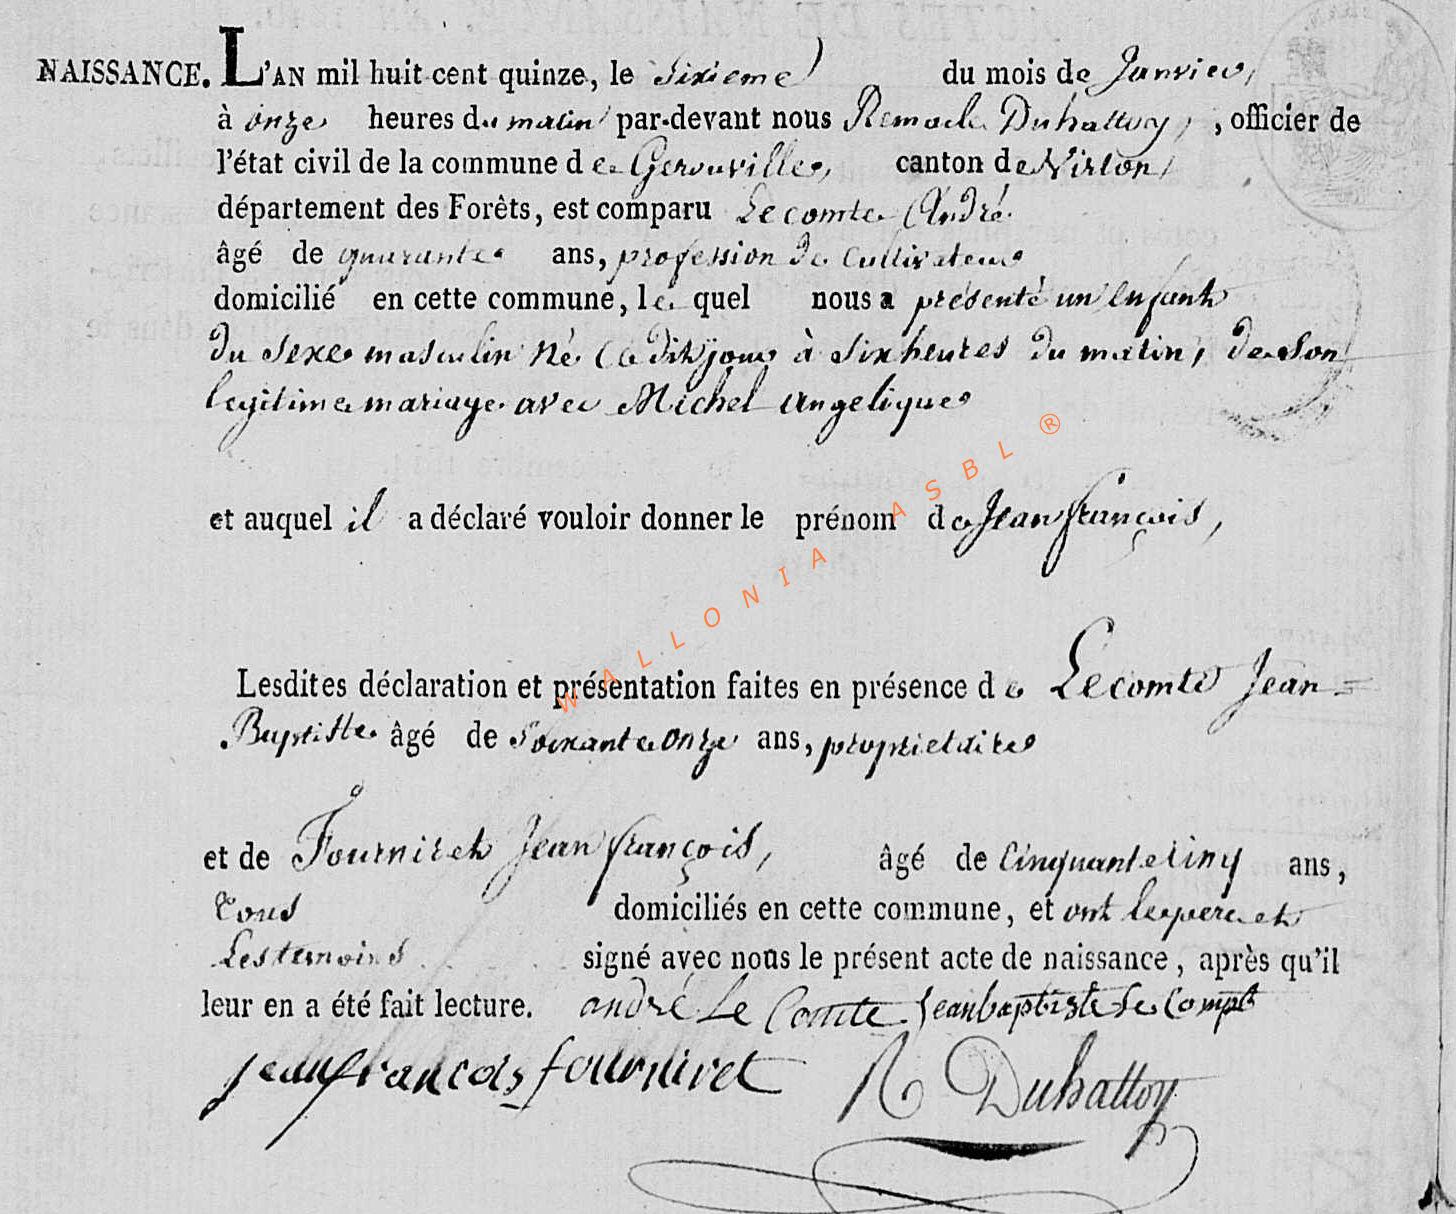 NAISSANCE. L'AN mil huit cent quinze, le Sixieme du mois de Janvier,
à onze heures du matin par-devant nous Remacle Duhattoy, , officier de
l'état civil de la commune de Gerouville, canton de Virton,
département des Forêts, est comparu Lecomte André
âgé de quarante ans, profession de Cultivateur
domicilié en cette commune, le quel nous a présenté un enfant
du Sexe masculin né Cedit jour à Six heures du matin, de Son
legitime mariage avec Michel Angelique
et auquel il a déclaré vouloir donner le prénom de Jean françois,
Lesdites déclaration et présentation faites en présence de Lecomte Jean=
Baptiste âgé de Soixante onze ans, proprietaire
et de Fourniret Jean françois, âgé de Cinquante cinq ans,
tous domiciliés en cette commune, et ont le pere et
Les temoins signé avec nous le présent acte de naissance, après qu'il
leur en a été fait lecture. andré Le Comte Jean baptiste Le Compt
jean francois fourniret R Duhattoy
WALLONIA ASBL ®